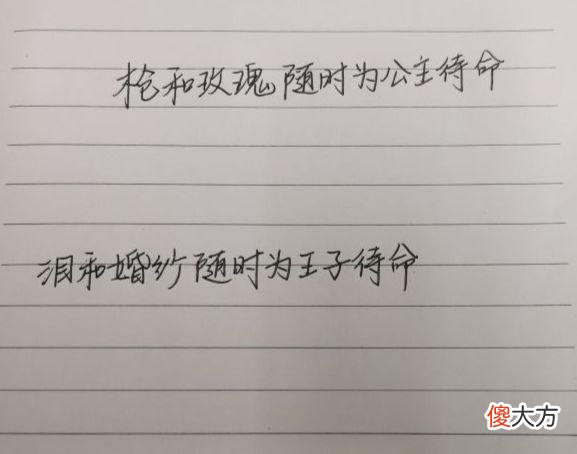 枪和玫瑰随时为公主待命
泪和婚纱随时为王子待命
傻大方